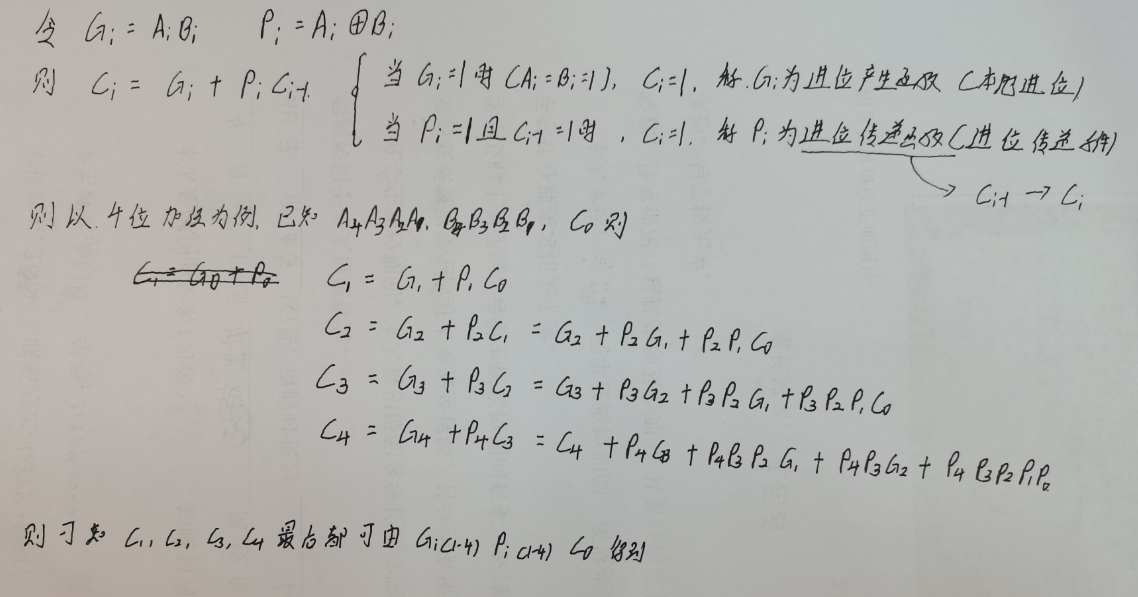 令 Gi = AiBi Pi = Ai⊕Bi
则 Ci = Gi + PiCi-1. { 当 Gi=1 时 (Ai=Bi=1), Ci=1, 称 Gi 为进位产生函数 (本地进位)
当 Pi=1 且 Ci-1=1 时, Ci=1. 称 Pi 为进位传递函数 (进位传递条件)
Ci-1 → Ci
则以 4位加法为例, 已知 A4A3A2A1, B4B3B2B1, C0 则
C1 = G0 + P0 C1 = G1 + P1C0
C2 = G2 + P2C1 = G2 + P2G1 + P2P1C0
C3 = G3 + P3C2 = G3 + P3G2 + P3P2G1 + P3P2P1C0
C4 = G4 + P4C3 = C4 + P4G3 + P4P3P2G1 + P4P3G2 + P4P3P2P1P0
则可知 C1, C2, C3, C4 最后都可由 Gi(1-4) Pi(1-4) C0 得到